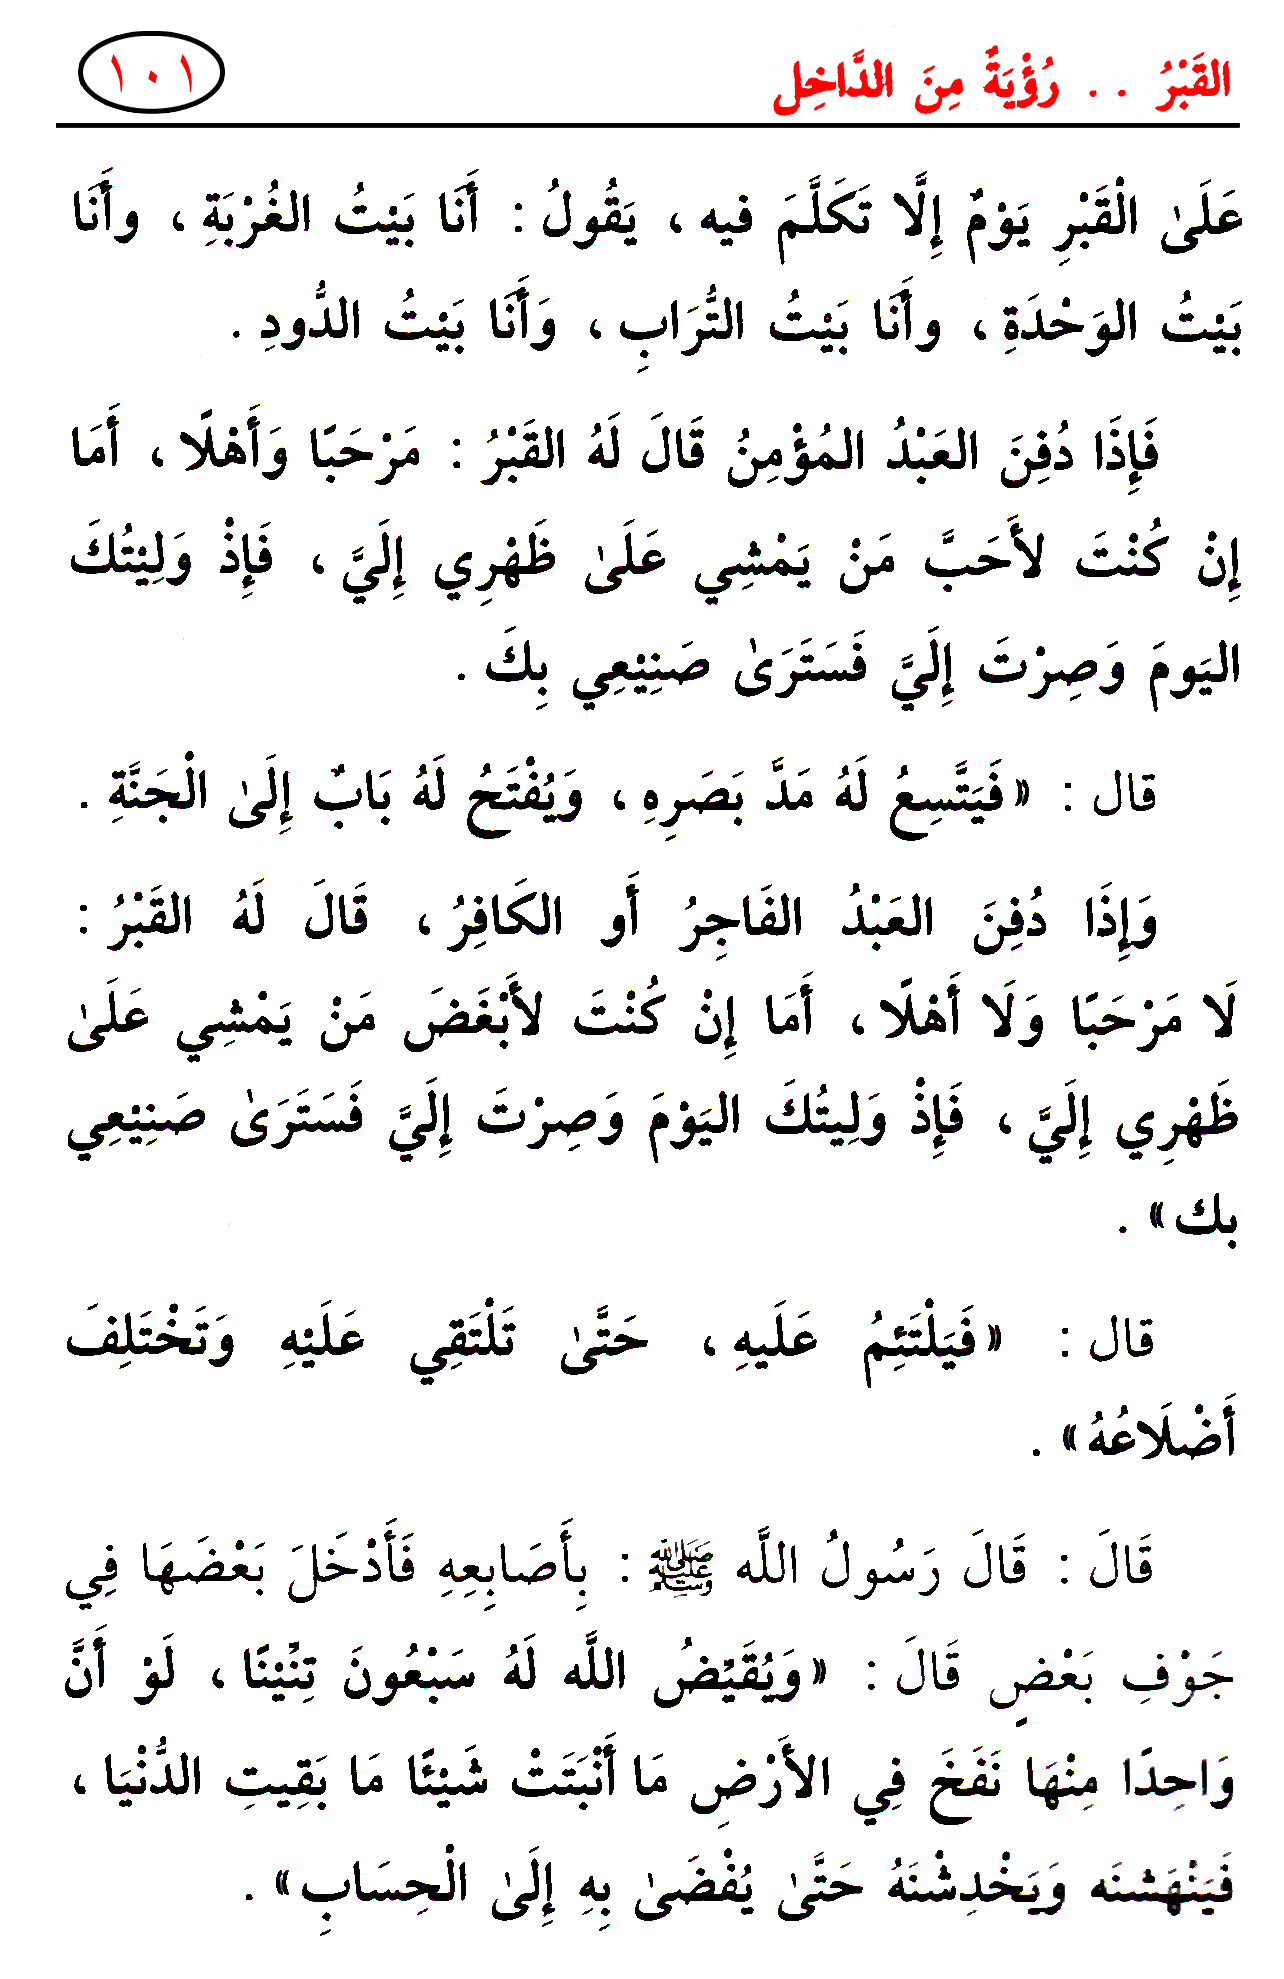 القَبْرُ . . رُؤْيَةٌ مِنَ الدَّاخِلِ
١٠١
عَلَىٰ الْقَبْرِ يَوْمٌ إِلَّا تَكَلَّمَ فيه ، يَقُولُ : أَنَا بَيْتُ الغُرْبَةِ ، وأَنَا
بَيْتُ الوَحْدَةِ ، وأَنَا بَيْتُ التُّرَابِ ، وَأَنَا بَيْتُ الدُّودِ .
فَإِذَا دُفِنَ العَبْدُ المُؤْمِنُ قَالَ لَهُ القَبْرُ : مَرْحَبًا وَأَهْلًا ، أَمَا
إِنْ كُنْتَ لأَحَبَّ مَنْ يَمْشِي عَلَىٰ ظَهْرِي إِلَيَّ ، فَإِذْ وَلِيْتُكَ
اليَومَ وَصِرْتَ إِلَيَّ فَسَتَرَىٰ صَنِيْعِي بِكَ .
قال : «فَيَتَّسِعُ لَهُ مَدَّ بَصَرِهِ ، وَيُفْتَحُ لَهُ بَابٌ إِلَىٰ الْجَنَّةِ .
وَإِذَا دُفِنَ العَبْدُ الفَاجِرُ أَو الكَافِرُ ، قَالَ لَهُ القَبْرُ :
لَا مَرْحَبًا وَلَا أَهْلًا ، أَمَا إِنْ كُنْتَ لأَبْغَضَ مَنْ يَمْشِي عَلَىٰ
ظَهْرِي إِلَيَّ ، فَإِذْ وَلِيتُكَ اليَوْمَ وَصِرْتَ إِلَيَّ فَسَتَرَىٰ صَنِيْعِي
بك» .
قال : «فَيَلْتَئِمُ عَلَيهِ ، حَتَّىٰ تَلْتَقِي عَلَيْهِ وَتَخْتَلِفَ
أَضْلَاعُهُ» .
قَالَ : قَالَ رَسُولُ اللَّه ﷺ : بِأَصَابِعِهِ فَأَدْخَلَ بَعْضَهَا فِي
جَوْفِ بَعْضٍ قَالَ : «وَيُقَيِّضُ اللَّه لَهُ سَبْعُونَ تِنِّيْنًا ، لَوْ أَنَّ
وَاحِدًا مِنْهَا نَفَخَ فِي الأَرْضِ مَا أَنْبَتَتْ شَيْئًا مَا بَقِيتِ الدُّنْيَا ،
فَيَنْهَشنَه وَيَخْدِشْنَهُ حَتَّىٰ يُفْضَىٰ بِهِ إِلَىٰ الْحِسَابِ» .